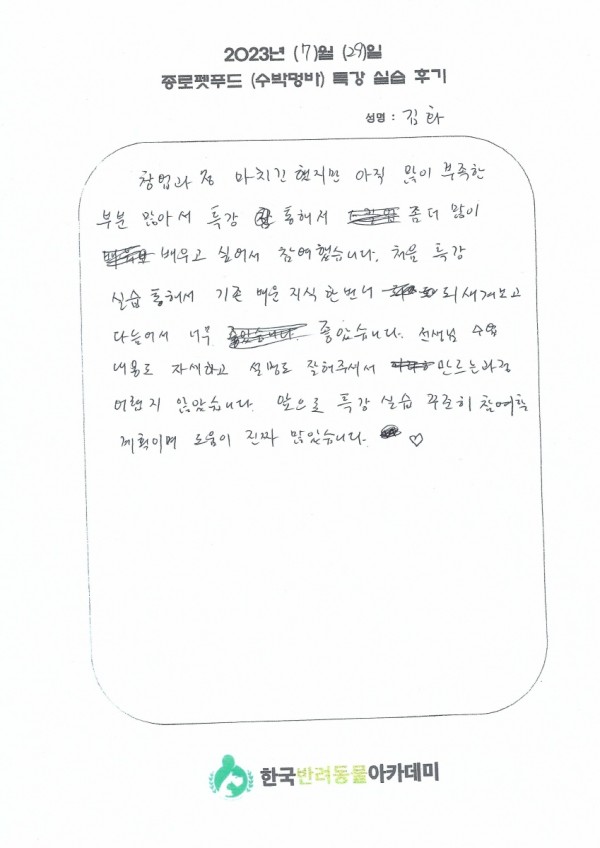 2023년 (7)월 (29)일
종로펫푸드 (수박멍바) 특강 실습 후기
성명 : 김화
창업과정 마치긴 했지만 아직 많이 부족한
부분 많아서 특강 통해서 좀더 많이
배우고 싶어서 참여했습니다. 처음 특강
실습 통해서 기존 배운 지식 한번더 되새겨보고
다듬어서 너무 좋았습니다. 선생님 수업
내용도 자세하고 설명도 잘해주셔서 만드는과정
어렵지 않았습니다. 앞으로 특강 실습 꾸준히 참여할
계획이며 도움이 진짜 많았습니다. ♡
한국반려동물아카데미